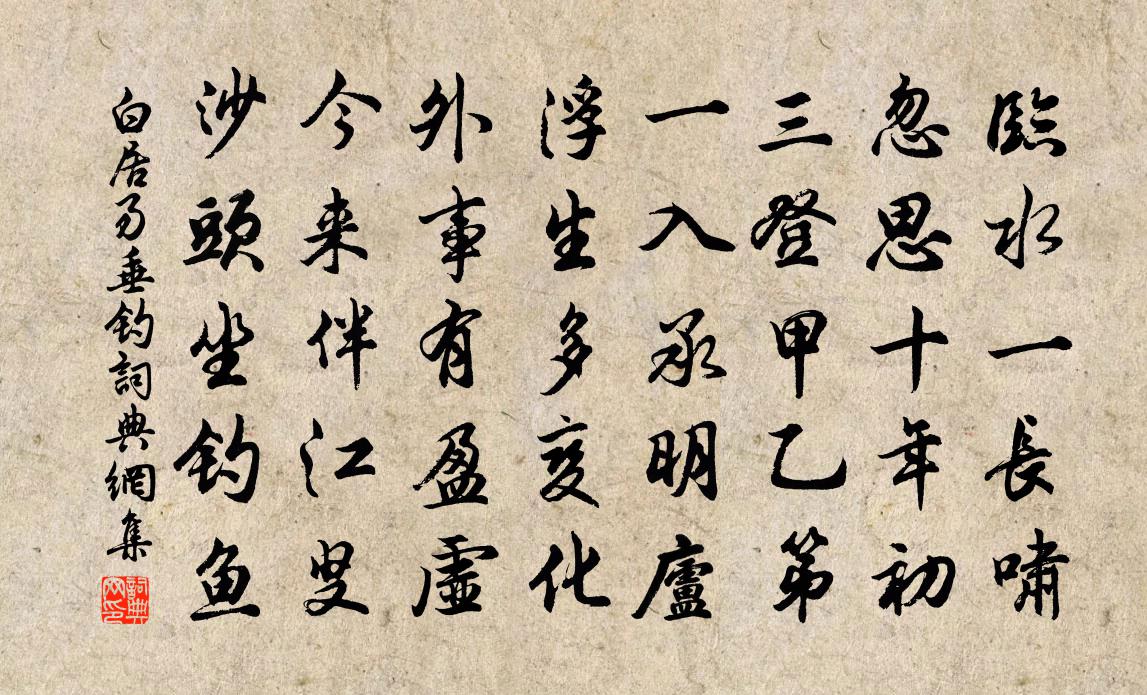 臨水一長嘯
忽思十年初
三登甲乙第
一入承明廬
浮生多変化
外事有盈虛
今来伴江叟
沙頭坐釣魚
白居易垂釣詞典網集
詞典网印